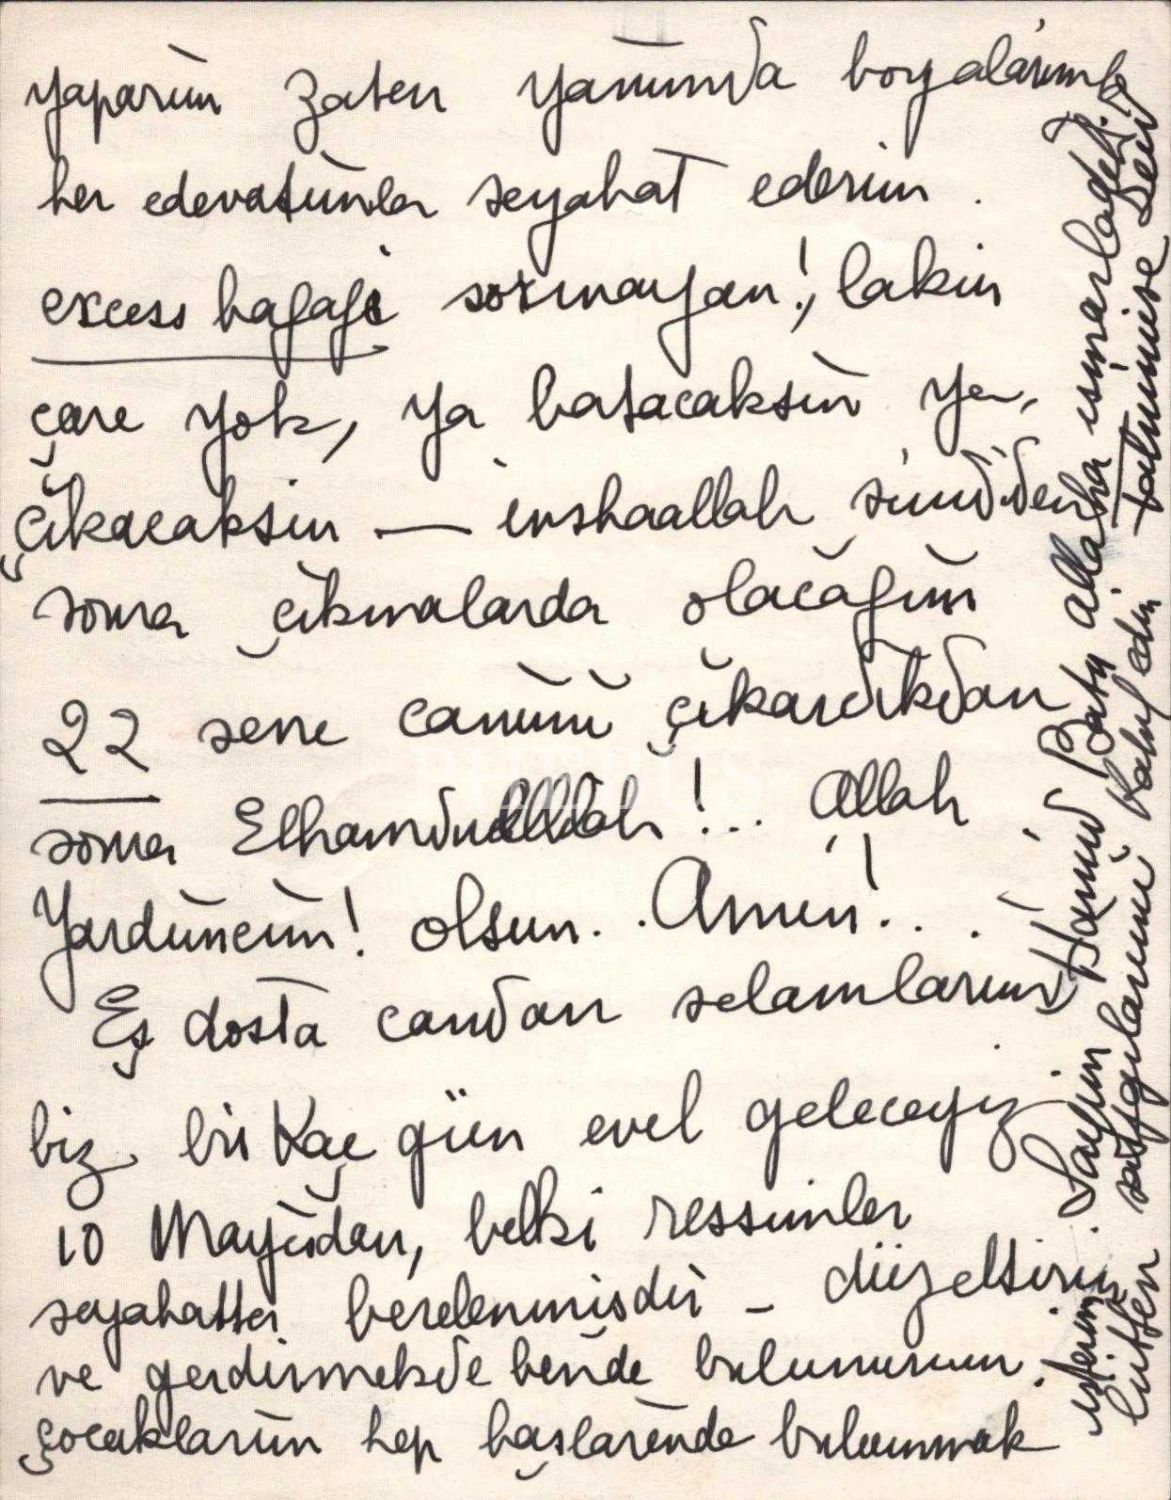 yaparım zaten yanımda boyalarımla
her edevatımla seyahat ederim.
excess bagaji sormayan!, lakin
çare yok, ya batacaksın ya,
çıkacaksın — inshaallah şimdiden
sonra çıkmalarda olacağım
22 sene canımı çıkardıkdan
sonra Elhamdulillah!... Allah
Yardımcım! olsun.. Amin!...
Eş dosta candan selamlarım
biz bir kaç gün evel geleceyiz
10 Mayısdan, belki ressimler
seyahatte berelenmişdir – düzeltirim
ve gerdirmekde bende bulunurum.
çocuklarım hep başlarında bulunmak
isterim. Sayın Hamid Batu allaha ısmarladık.
lütfen saygılarımı kabul edin
Fahrunnisa Zeid
PHEBUS